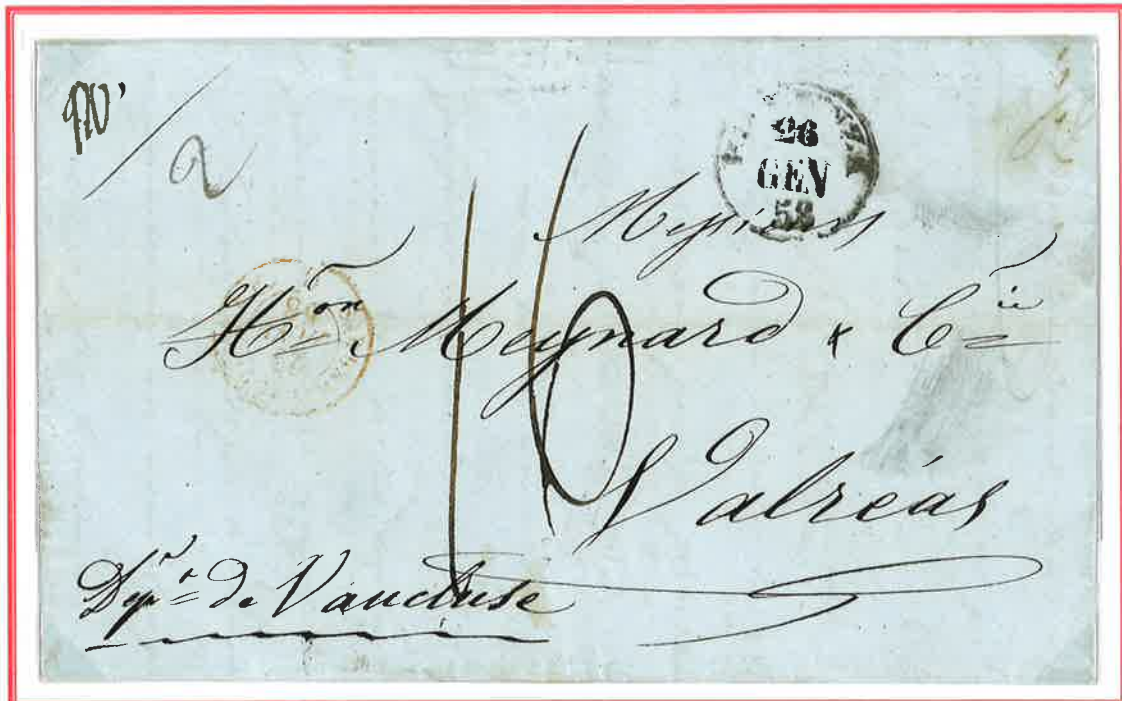 26
GEN
53
2
16
Messieurs
H.on Meynard & C.ie
Valréas
Dép.t de Vaucluse